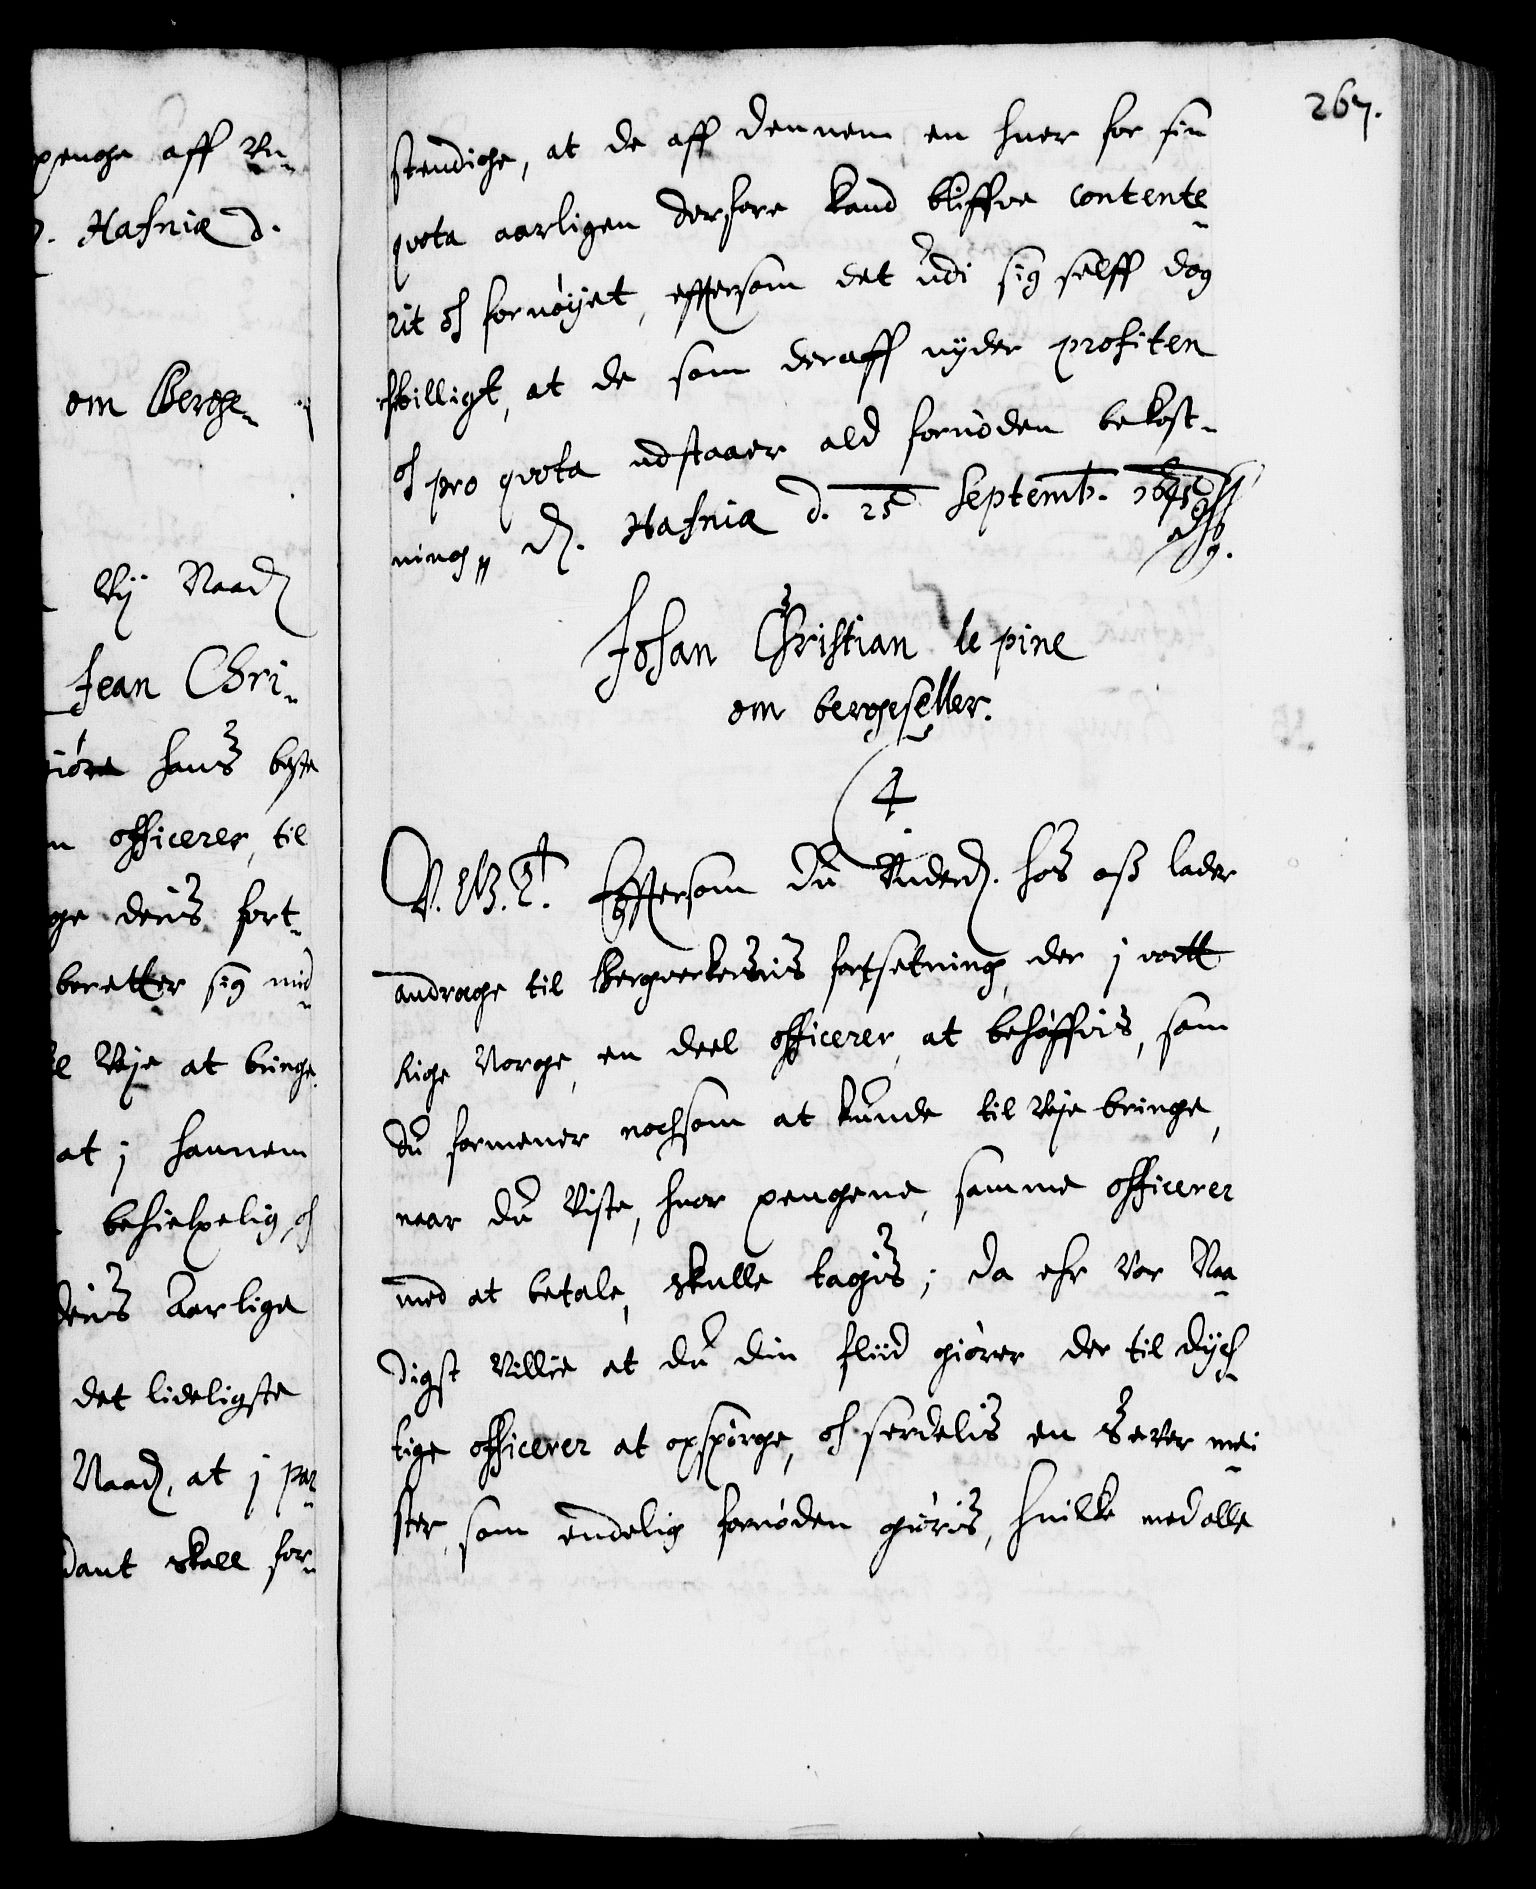 penge aff Un-
Hafniæ d.
om Berge-
Vij Naad.
Jean Chri-
giöre hans beste
officerer, til
ge deris fort-
beretter sig med
Veje at bringe
at j hannem
behielpelig, och
deris Aarlige
det lideligste
Naad. at j paa
dant skall for-
267.
stendige, at de aff dennem en huer for sin
qvota aarligen derfore kand bliffve contente-
rit och fornöyet, effersom det udi sig selff dog
billigt, at de som deraff nyder profiten
och pro qvota udstaaer ald fornöden bekost-
ning,, D. Hafniæ d. 25 Septemb. 1645
Johan Christian le pine
om bergeseller.
4
V. G. T. Effersom du Underd. hos oss lader
andrage til Bergverkernis fortsetning, der j vortt
Rige Norge, en deel officerer, at behöffvis, som
du formener nochsom at kunde til Veje bringe,
naar du Viste, huor pengene, samme officerer
med at betale, skulle tagis; da ehr Vor Naa-
digst Villie at du din fliid giörer der til dych-
tige officerer at opspörge, och serdelis en Sever mei-
ster, som endelig fornöden giöris, huilke med alle